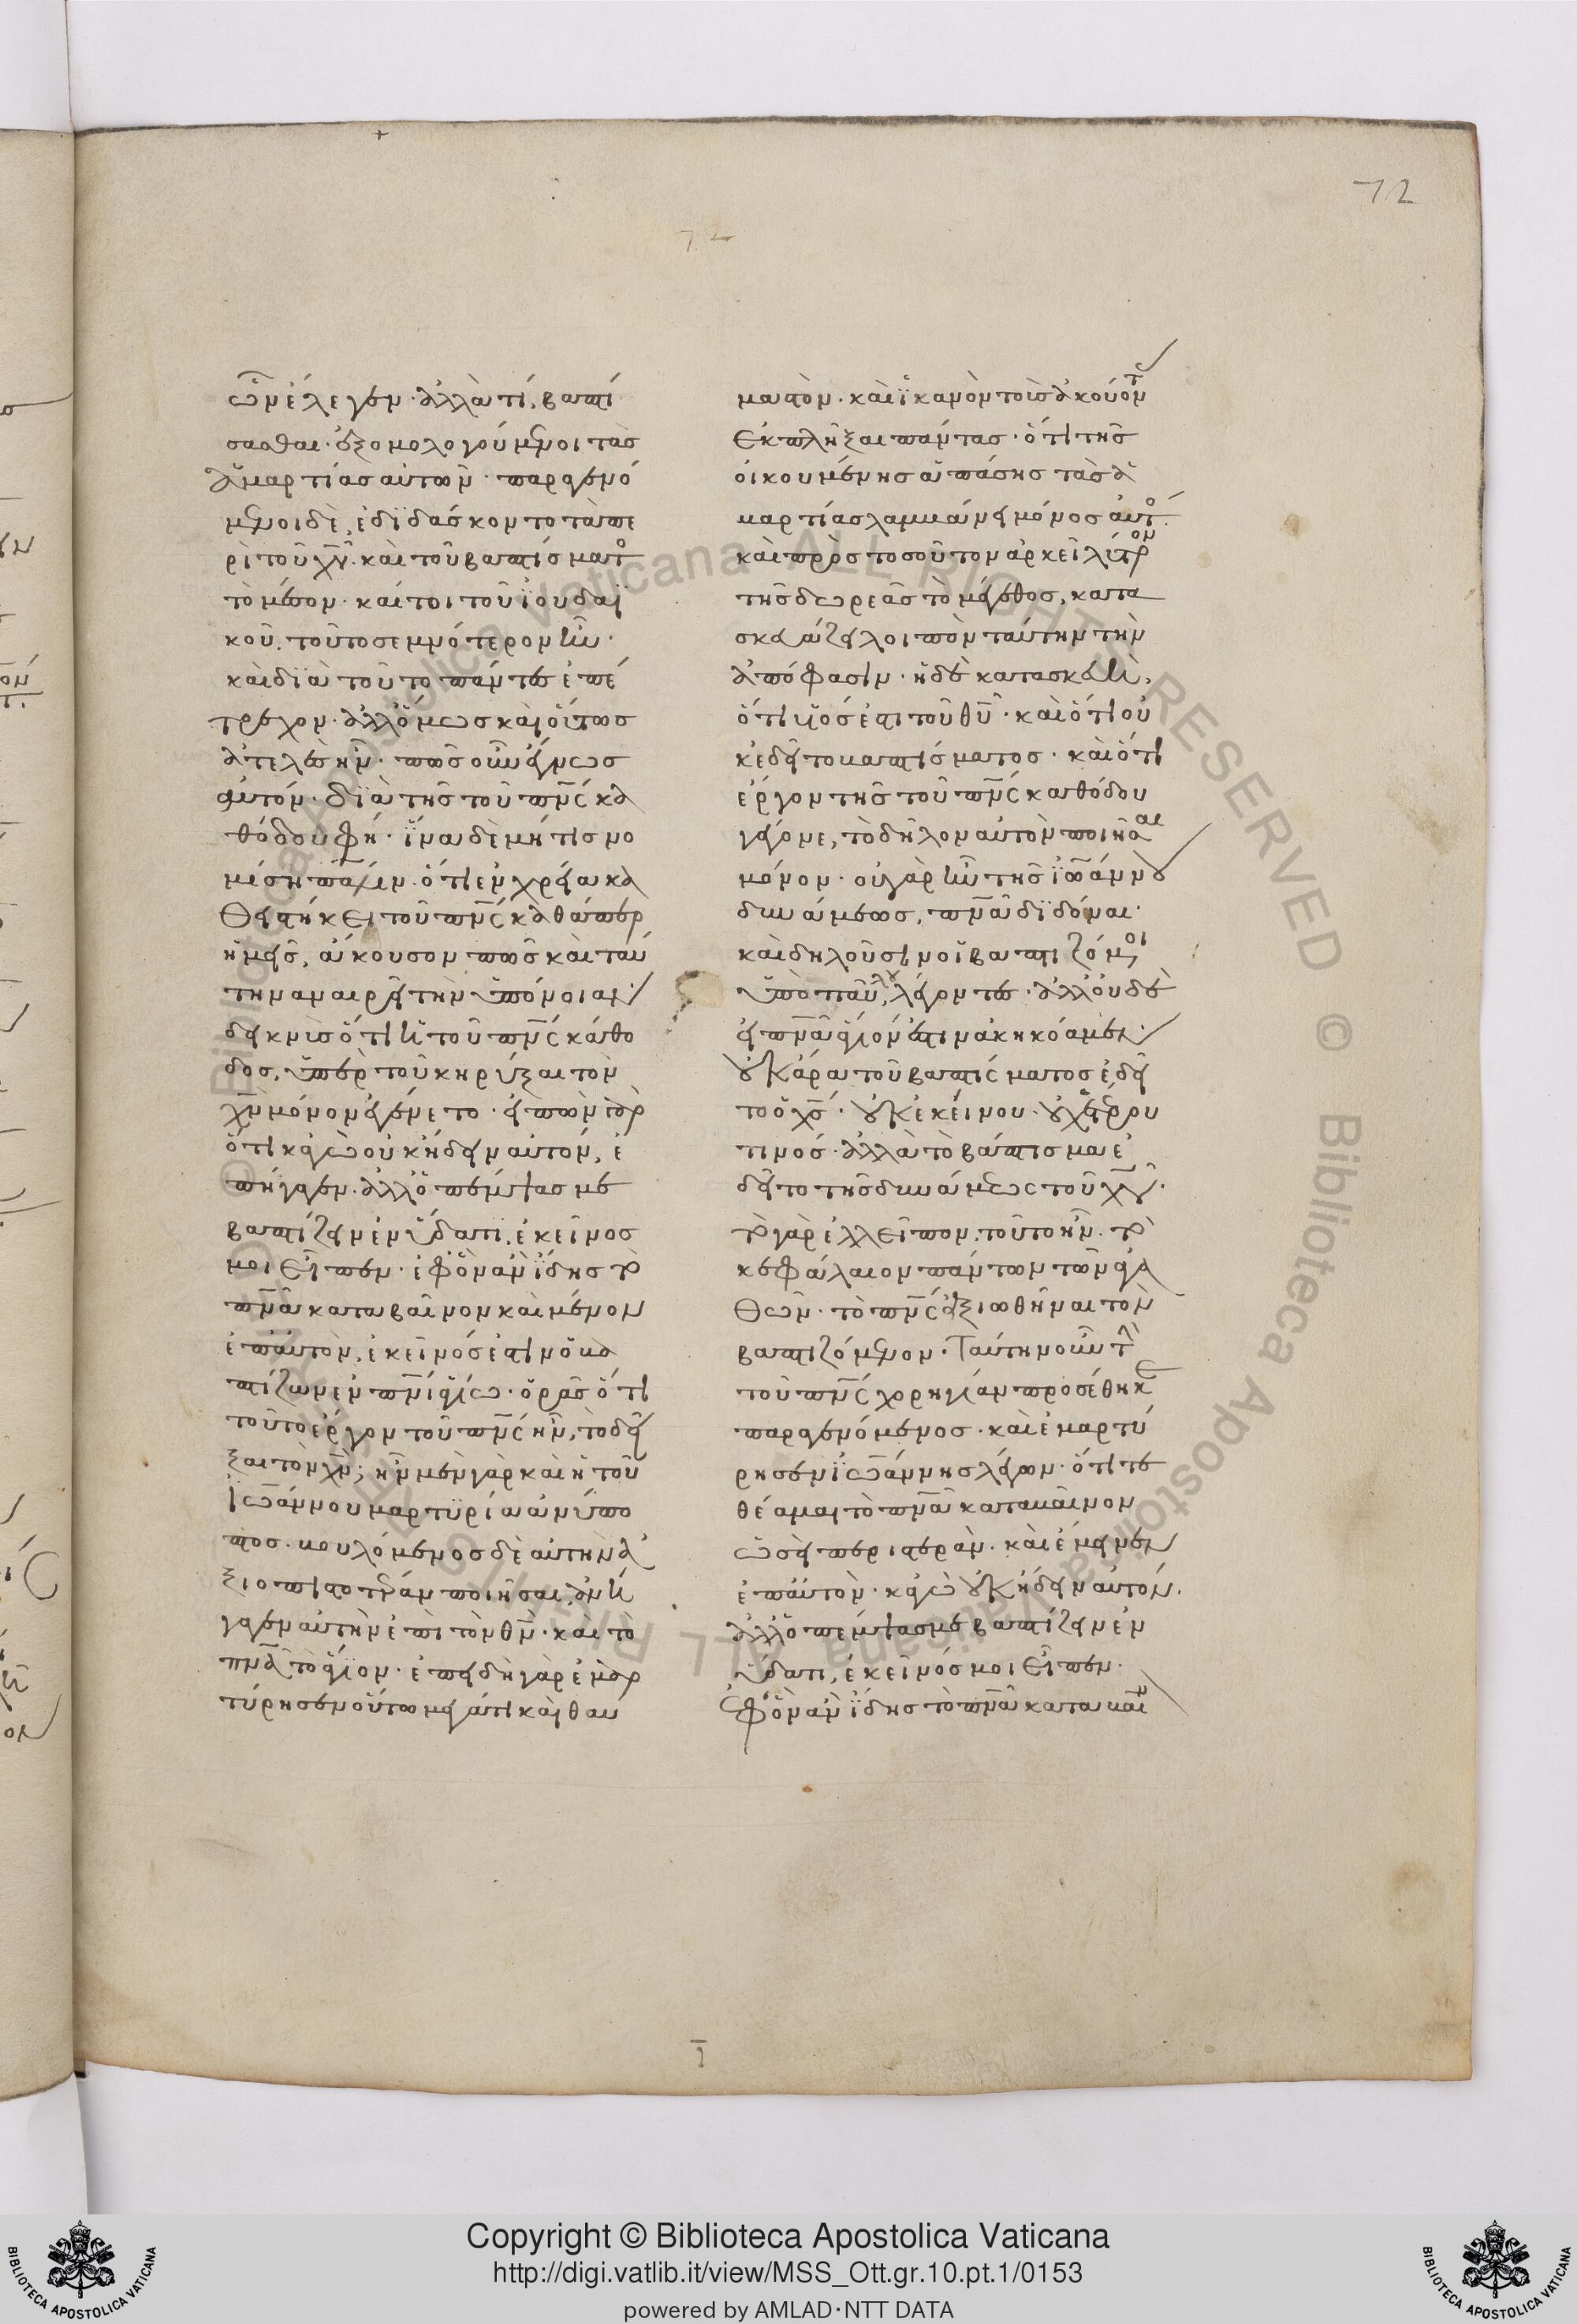 72
72
ῶν ἔλεγεν· ἀλλὰ τί, βαπτί
σασθαι· ἐξομολογούμενοι τὰς
ἁμαρτίας αὐτῶν· παραγενό
μενοι δὲ, ἐδϊδάσκοντο τὰ πε
ρὶ τοῦ χυ̅· καὶ τοῦ βαπτίσματο
τὸ μέσον· καίτοι τοῦ ἰουδαϊ
κοῦ. τοῦτο σεμνότερον ἦν·
καὶ διὰ τοῦτο πάντες ἐπέ
τρεχον· ἀλλ' ὅμως καὶ οὕτως
ἀτελὲς ἦν· πῶς οὖν ἔγνως
αὐτόν· δϊὰ τῆς τοῦ πνς̅ κα
θόδου φη· ἵνα δὲ μή τις νο
μίσῃ πάλιν· ὅτι ἐν χρείᾳ κα
θειστήκει τοῦ πνς̅ καθάπερ
ἡμεῖς, ἄκουσον πῶς καὶ ταύ
την ἀναιρεῖ τὴν ὑπόνοιαν·
δεικνὺς ὅτι ἡ τοῦ πνς̅ κάθο
δος, ὑπὲρ τοῦ κηρῦξαι τὸν
χν̅ μόνον ἐγένετο· εἰπὼν γὰρ
ὅτι κἀγὼ οὐκ ᾔδειν αὐτόν, ἐ
πήγαγεν· ἀλλ' ὁ πέμψας με
βαπτίζειν ἐν ὕδατι, ἐκεῖνος
μοι εἶπεν· ἐφ' ὃν ἂν ἴδῃς τὸ
πνα̅ καταβαῖνον καὶ μένον
ἐπ' αὐτὸν, ἐκεῖνός ἐστιν ὁ βα
πτίζων ἐν πνι̅ ἁγίω· ὁρᾶς ὅτι
τοῦτο ἔργον τοῦ πνς̅ ἦν, τὸ δεῖ
ξαι τὸν χν̅; ἦν μὲν γὰρ καὶ ἡ τοῦ
ἰωάννου μαρτϋρία ἀνύπο
πτος· βουλόμενος δὲ αὐτὴν ἀ
ξιοπιστοτέραν ποιῆσαι, ἀνή
γαγεν αὐτὴν ἐπὶ τὸν θν̅· καὶ τὸ
πνα̅ τὸ ἅγιον· ἐπειδὴ γὰρ ἐμαρ
τύρησεν οὕτω μέγα τι καὶ θαυ
μαστὸν· καὶ ἱκανὸν τοὺς ἀκούοντ
ἐκπλῆξαι πάντας· ὅτι τῆς
οἰκουμένης ἁπάσης τὰς ἁ
μαρτίας λαμβάνει μόνος αὐτο
καὶ πρὸς τοσοῦτον ἀρκεῖ λύτρον
τῆς δωρεᾶς τὸ μέγεθος, κατα
σκευάζει λοιπὸν ταύτην τὴν
ἀπόφασιν· ἡ δὲ κατασκευὴ,
ὅτι υἱός ἐστι τοῦ θυ̅· καὶ ὅτι οὐ
κ ἐδεῖτο βαπτίσματος· καὶ ὅτι
ἔργον τῆς τοῦ πνς̅ καθόδου
γέγονε, τὸ δῆλον αὐτὸν ποιῆσαι
μόνον· οὐ γὰρ ἦν τῆς ἰωάννου
δυνάμεως, πνα̅ δϊδόναι·
καὶ δηλοῦσιν οἱ βαπτιζόμενοι
ὑπ' αὐτοῦ, λέγοντες· ἀλλ' οὐδὲ
εἰ πνα̅ ἅγιόν ἐστιν ἀκηκόαμεν·
οὐκ ἄρα τοῦ βαπτίσματος ἐδεῖ
το ὁ χς̅· οὐκ ἐκείνου· οὐχ ἑτέρου
τινός· ἀλλὰ τὸ βάπτισμα ἐ
δεῖτο τῆς δυνάμεως τοῦ χυ̅·
τὸ γὰρ ἐλλεῖπον, τοῦτο ἦν· τὸ
κεφάλαιον πάντων τῶν ἀγα
θῶν· τὸ πνς̅ ἀξιωθῆναι τὸν
βαπτιζόμενον· ταύτην οὖν τὴ
τοῦ πνς̅ χορηγίαν προσέθηκε
παραγενόμενος· καὶ ἐμαρτύ
ρησεν ἰωάννης λέγων· ὅτι τε
θέαμαι τὸ πνα̅ καταβαῖνον
ὡσεὶ περιστερὰν· καὶ ἔμεινεν
ἐπ' αὐτὸν· κἀγὼ οὐκ ᾔδειν αὐτόν·
ἀλλ' ὁ πέμψας με βαπτίζειν ἐν
ὕδατι, ἐκεῖνός μοι εἶπεν·
ἐφ' ὃν ἂν ἴδῃς τὸ πνα̅ καταβαῖν
Copyright © Biblioteca Apostolica Vaticana
http://digi.vatlib.it/view/MSS_Ott.gr.10.pt.1/0153
powered by AMLAD·NTT DATA